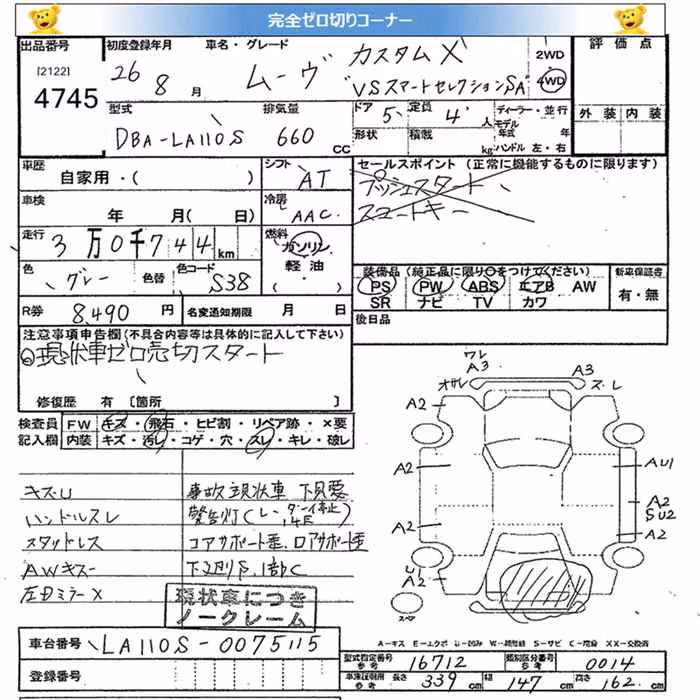 完全ゼロ切りコーナー
出品番号 初度登録年月 車名・グレード 評価点
[2122] 4745 26 8 月 ムーヴ カスタムX 2WD
"VSスマートセレクションSA" 4WD
型式 排気量 ドア 5 定員 4 人 ディーラー・並行 外装 内装
モデル 年式 年
DBA-LA110S 660 cc 形状 積載 kg ハンドル 左・右
車歴 シフト セールスポイント (正常に機能するものに限ります)
自家用・( ) AT プッシュスタート
車検 冷房 スマートキー
年 月( 日) AAC
走行 燃料
3万0千744km ガソリン
軽油
色 色替 色コード 装備品 (純正品に限り○をつけてください) 新車保証書
グレー S38 ・( ) PS PW ABS エアB AW 有・無
SR ナビ TV カワ
R券 8,490 円 名変通知期限 月 日 後日品
注意事項申告欄(不具合内容等は具体的に記入して下さい)
◎現状車ゼロ売切スタート
修復歴 有 [箇所 ]
検査員 FW キズ・飛石・ヒビ割・リペア跡・×要
記入欄 内装 キズ・汚レ・コゲ・穴・スレ・キレ・破レ
キズU 事故現状車
ハンドルスレ 警告灯
スタッドレス コアサポート歪、ロアサポート歪
AWキズ
左ドミラーX
現状車につき
ノークレーム
ワレ
A3 A3
スレ
A2
A2 AU1
A2
SU2
A2 A2
U1
A2
スペア
A-キズ E-エクボ U-凹み W-補修跡 S-サビ C-腐蝕 XX-交換済
車台番号 LA110S-0075115
型式指定番号 参考 16712 類別区分番号 参考 0014
登録番号 車庫証明用 参考 長さ 339 cm 幅 147 cm 高さ 162 cm